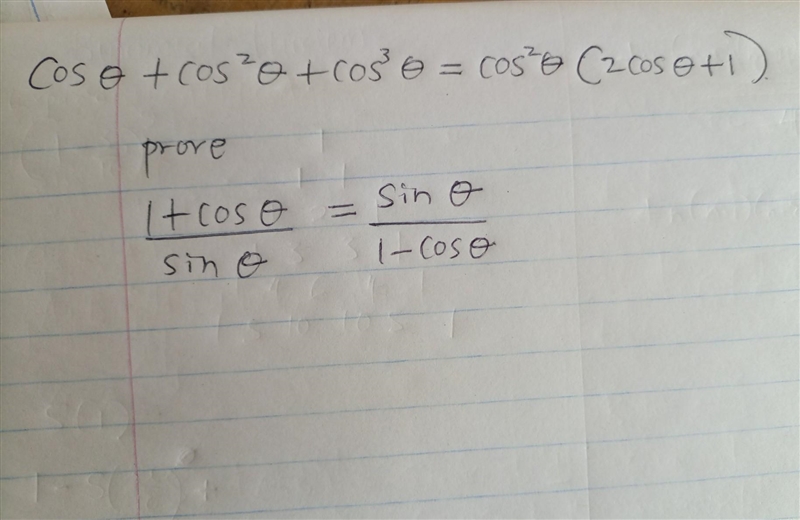 cos θ + cos²θ + cos³ θ = cos²θ (2cos θ + 1)
prove
1 + cos θ / sin θ = sin θ / 1 - cos θ